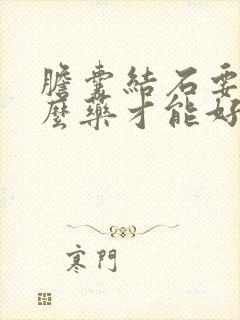 膽囊結石要
麼藥才能好
寒門